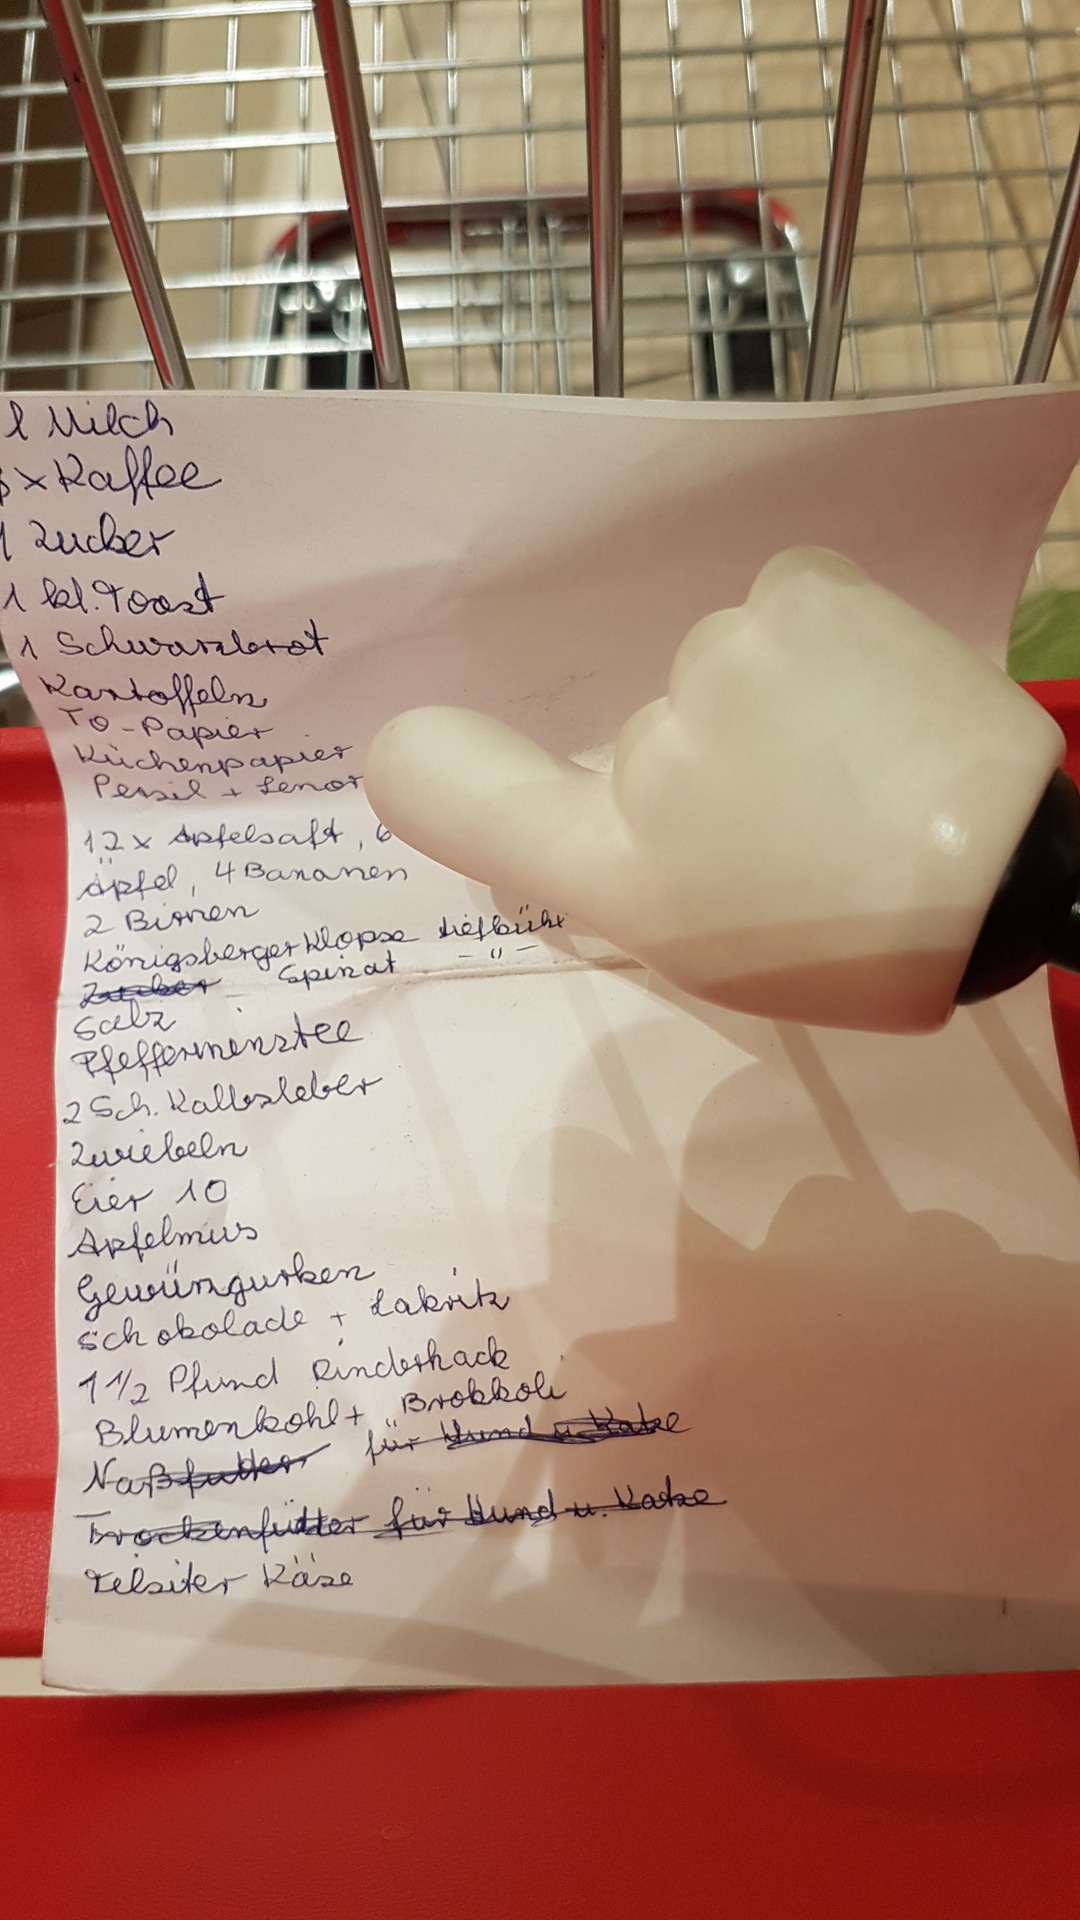 l Milch
x Kaffee
1 Zucker
1 kl. Toast
1 Schwarzbrot
Kartoffeln
TO-Papier
Küchenpapier
Persil + Lenor
12 x Apfelsaft, 6
Äpfel, 4 Bananen
2 Birnen
Königsberger Klopse tiefkühl
Zucker Spinat - " -
Salz
Pfefferminztee
2 Sch. Kalbsleber
Zwiebeln
Eier 10
Apfelmus
Gewürzgurken
Schokolade + Lakritz
1 1/2 Pfund Rinderhack
Blumenkohl + Brokkoli
Naßfutter für Hund u. Katze
Trockenfutter für Hund u. Katze
Tilsiter Käse